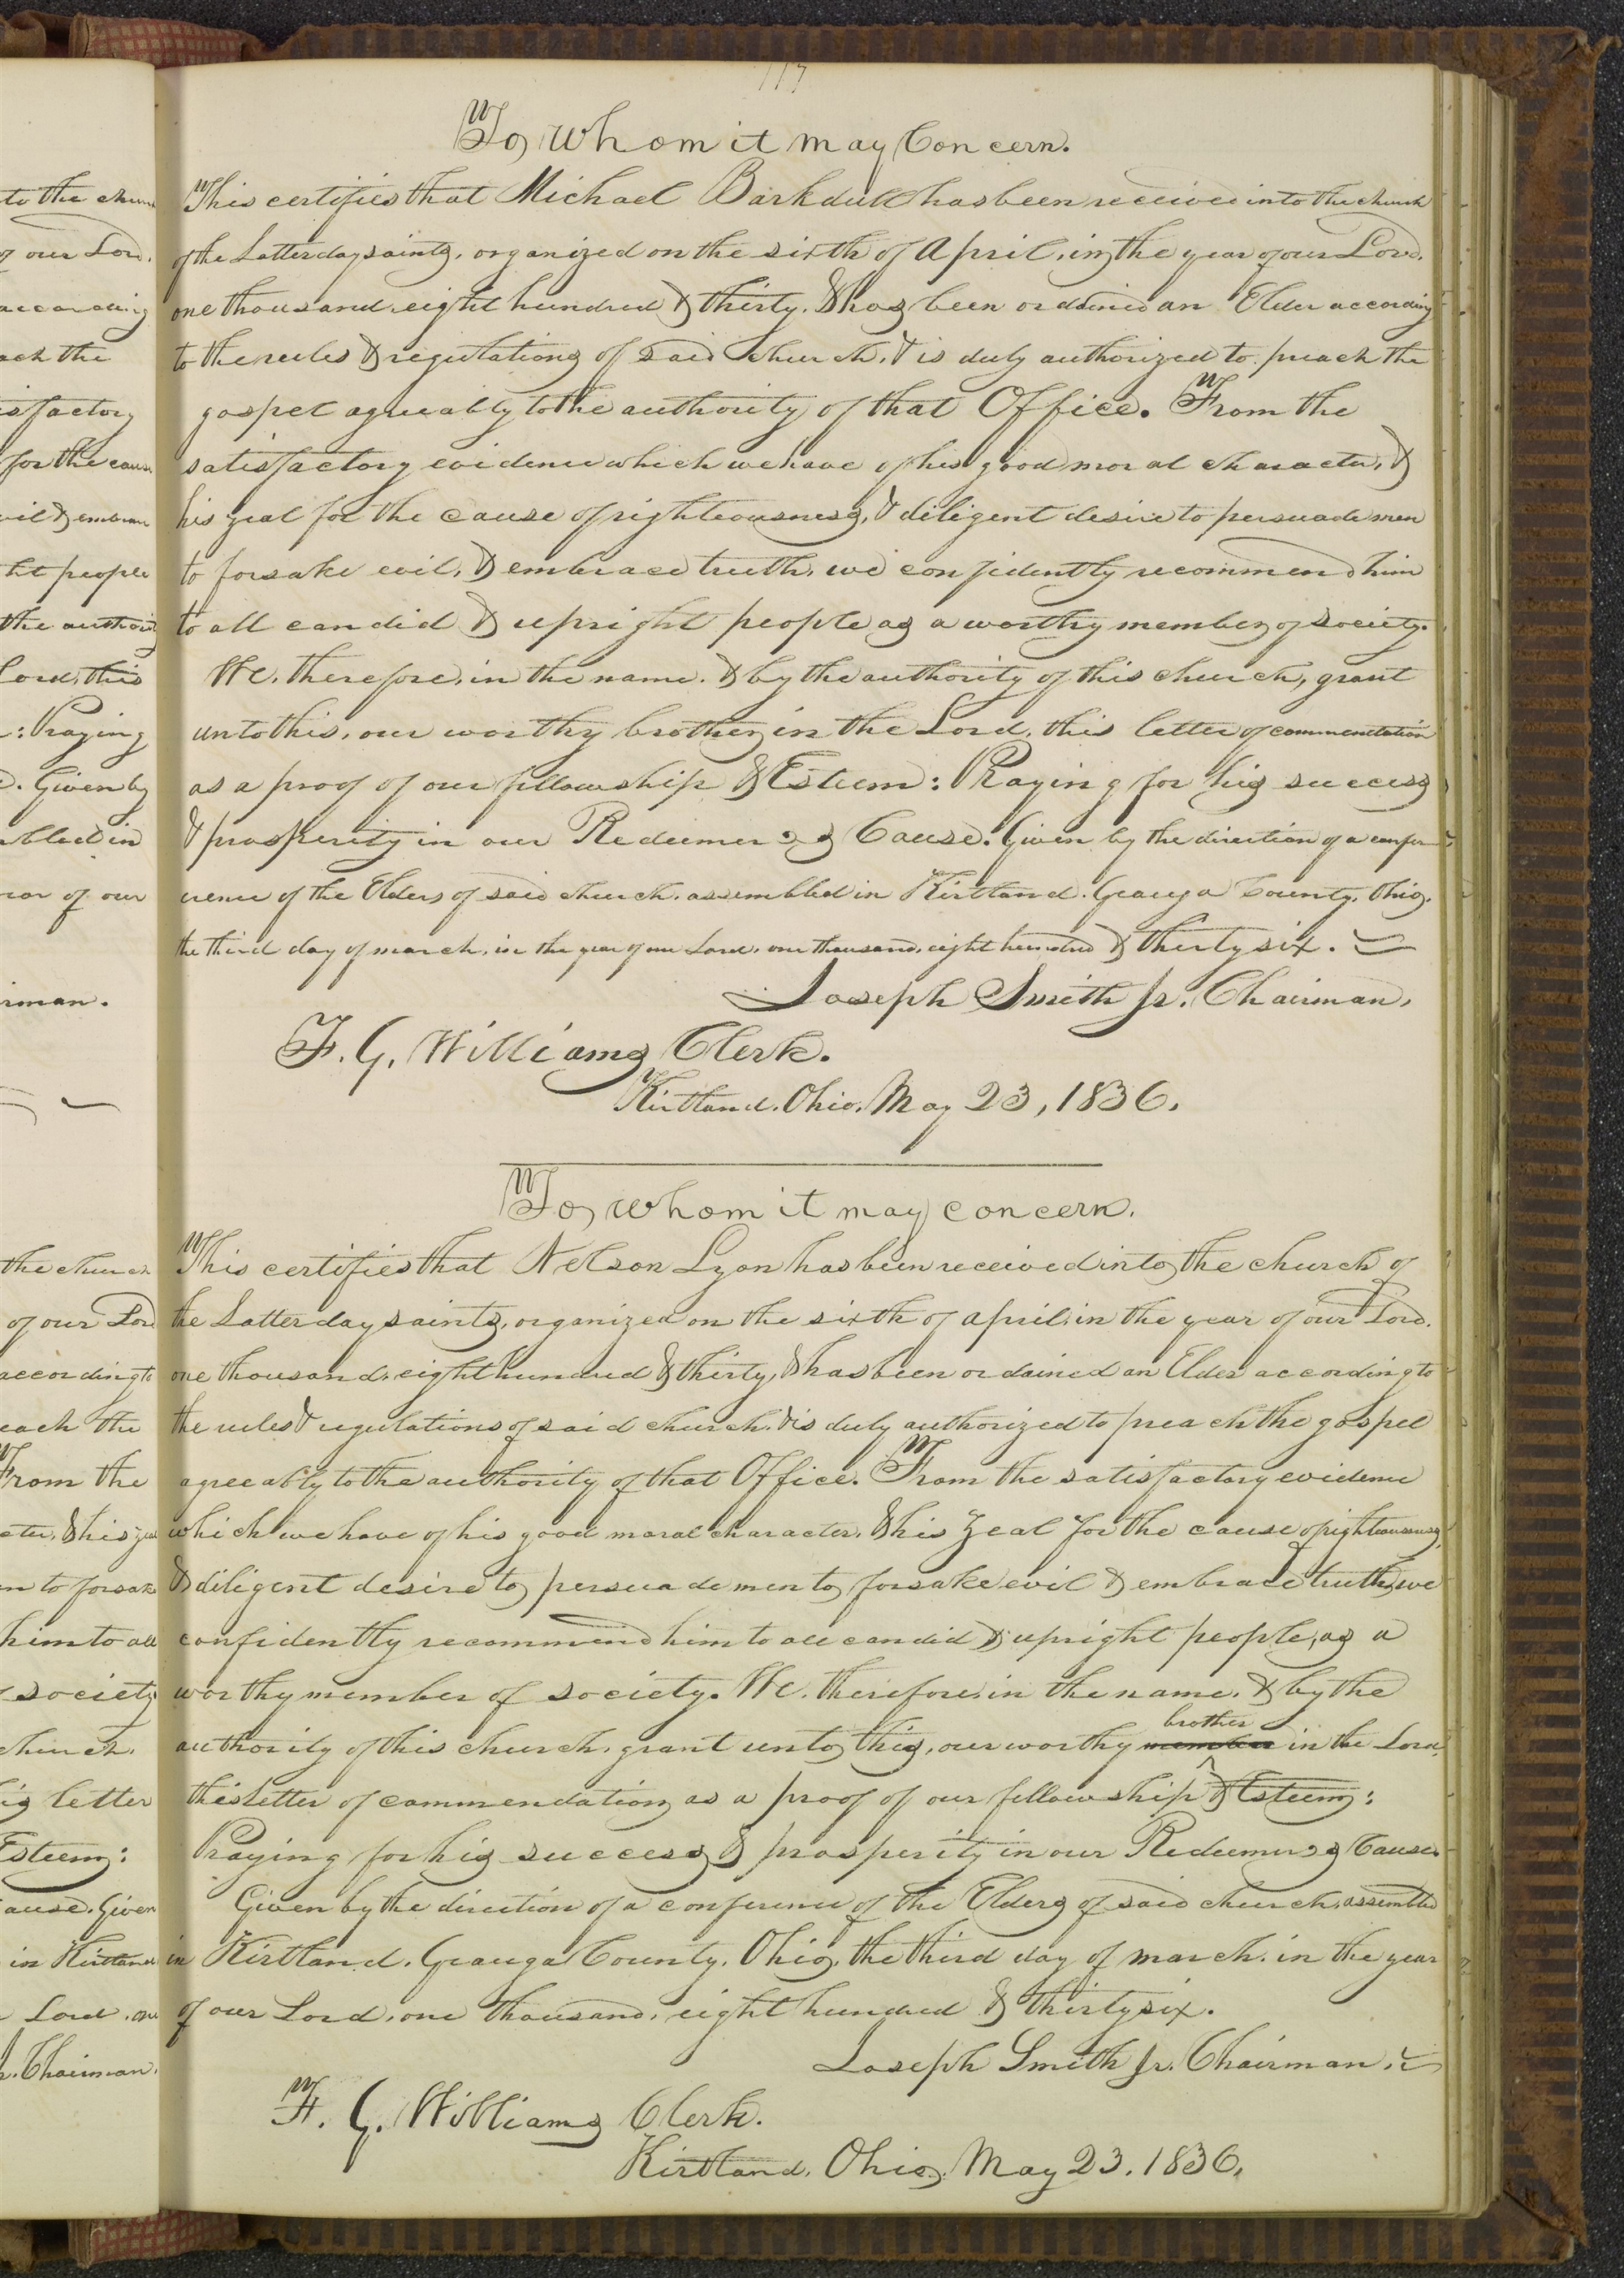 117
To, whom it may Concern.
This certifies that Michael Barkdull has been received into the church
of the Latter day saints, organized on the sixth of April, in the year of our Lord,
one thousand, eight hundred & thirty, & has been ordained an Elder according
to the rules & regulations of said church, & is duly authorized to preach the
gospel agreeably to the authority of that Office. From the
satisfactory evidence which we have of his good moral character, &
his zeal for the cause of righteousness, & diligent desire to persuade men
to forsake evil, & embrace truth, we confidently recommend him
to all candid & upright people as a worthy member of society.
We, therefore, in the name, & by the authority of this church, grant
unto this, our worthy brother in the Lord, this letter of commendation
as a proof of our fellowship & Esteem: Praying for his success
& prosperity in our Redeemer's Cause. Given by the direction of a confer-
erence of the Elders of said church, assembled in Kirtland, Geauga County, Ohio,
the third day of march, in the year of our Lord, one thousand, eight hundred & thirty six.
Joseph Smith Jr. Chairman,
F. G. Williams Clerk.
Kirtland, Ohio, May 23, 1836.
To, whom it may concern.
This certifies that Nelson Lyon has been received into the church of
the Latter day saints, organized on the sixth of april, in the year of our Lord,
one thousand, eight hundred & thirty, & has been ordained an Elder according to
the rules & regulations of said church, & is duly authorized to preach the gospel
agreeably to the authority of that Office. From the satisfactory evidence
which we have of his good moral character, & his zeal for the cause of righteousness,
& diligent desire to persuade men to forsake evil & embrace truth, we
confidently recommend him to all candid & upright people, as a
worthy member of society. We, therefore, in the name, & by the
authority of this church, grant unto this, our worthy member brother in the Lord,
this letter of commendation as a proof of our fellowship & Esteem:
Praying for his success & prosperity in our Redeemer's Cause.
Given by the direction of a conference of the Elders of said church, assembled
in Kirtland, Geauga County, Ohio, the third day of march, in the year
of our Lord, one thousand, eight hundred & thirty six.
Joseph Smith Jr. Chairman.
F. G. Williams Clerk.
Kirtland, Ohio, May 23, 1836.